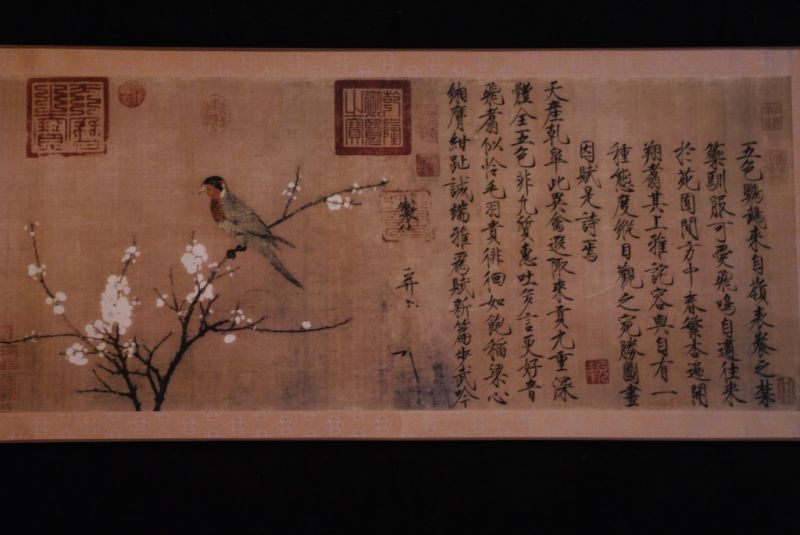 五色鸚鵡來自嶺表養之禁
籞馴服可愛飛鳴自適往來
於苑囿間方中春繁杏遍開
翔翥其上雅詫容與自有一
種態度縱目觀之宛勝圖畫
因賦是詩焉
天產乾皋此異禽遐陬來貢九重深
體全五色非凡質惠吐多言更好音
飛翥似憐毛羽貴徘徊如飽稻粱心
緗膺紺趾誠端雅爲賦新篇步武吟
乾隆御覽之寶